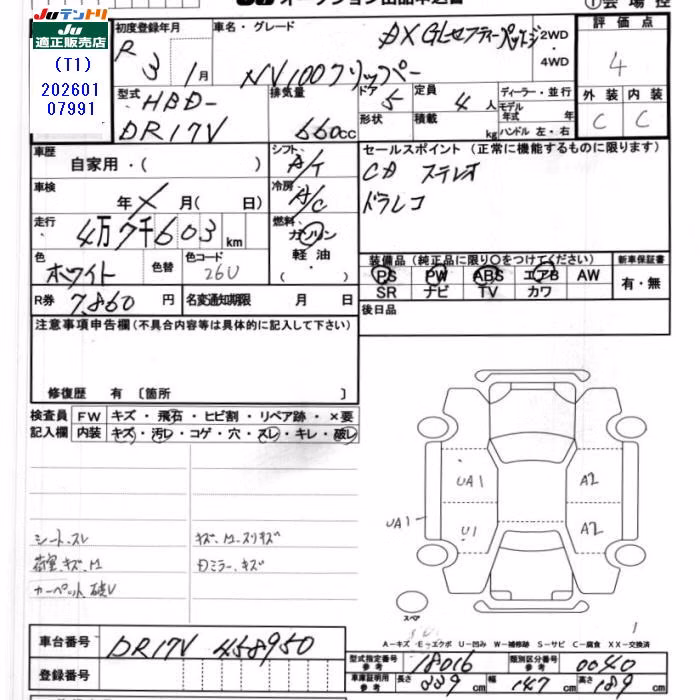 Juテントリ
Ju
適正販売店
(T1)
202601
07991
初度登録年月
R 3 1月
車名・グレード
DX GLセーフティーパッケージ
NV100クリッパー
2WD
4WD
評価点
4
外装 内装
C C
型式
HBD-
DR17V
排気量
660cc
ドア 5
形状
定員 4人
積載 kg
ディーラー・並行
モデル年式 年
ハンドル 左・右
車歴
自家用・( )
シフト
A/T
セールスポイント (正常に機能するものに限ります)
CD ステレオ
ドラレコ
車検
年 × 月( 日)
冷房
A/C
走行
4万7千603km
燃料
ガソリン
軽油
( )
色
ホワイト
色替
色コード
26U
装備品 (純正品に限り○をつけてください)
PS PW ABS エアB AW
SR ナビ TV カワ
新車保証書
有・無
R券 7,860 円
名変通知期限 月 日
後日品
注意事項申告欄(不具合内容等は具体的に記入して下さい)
修復歴 有 〔箇所 〕
検査員記入欄
FW キズ・飛石・ヒビ割・リペア跡・×要
内装 キズ・汚レ・コゲ・穴・スレ・キレ・破レ
UA1
A2
UA1
U1
A2
シート、スレ
キズ、凹、スリキズ
荷室、キズ、凹
Dミラー、キズ
カーペット、破レ
スペア
A-キズ E-エクボ U-凹み W-補修跡 S-サビ C-腐食 XX-交換済
車台番号
DR17V 458950
登録番号
型式指定番号
参考
18016
類別区分番号
参考
0040
車庫証明用
参考
長さ 339cm
幅 147cm
高さ 189cm